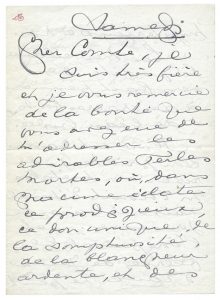 Samedi
Cher Comte, je
suis très fière
et je vous remercie
de la bonté que
vous avez eue de
m'adresser les
admirables Perles
mortes, où, dans
chacune éclate
ce prodigieux
ce don unique, de
la somptuosité,
de la blancheur
ardente, et des